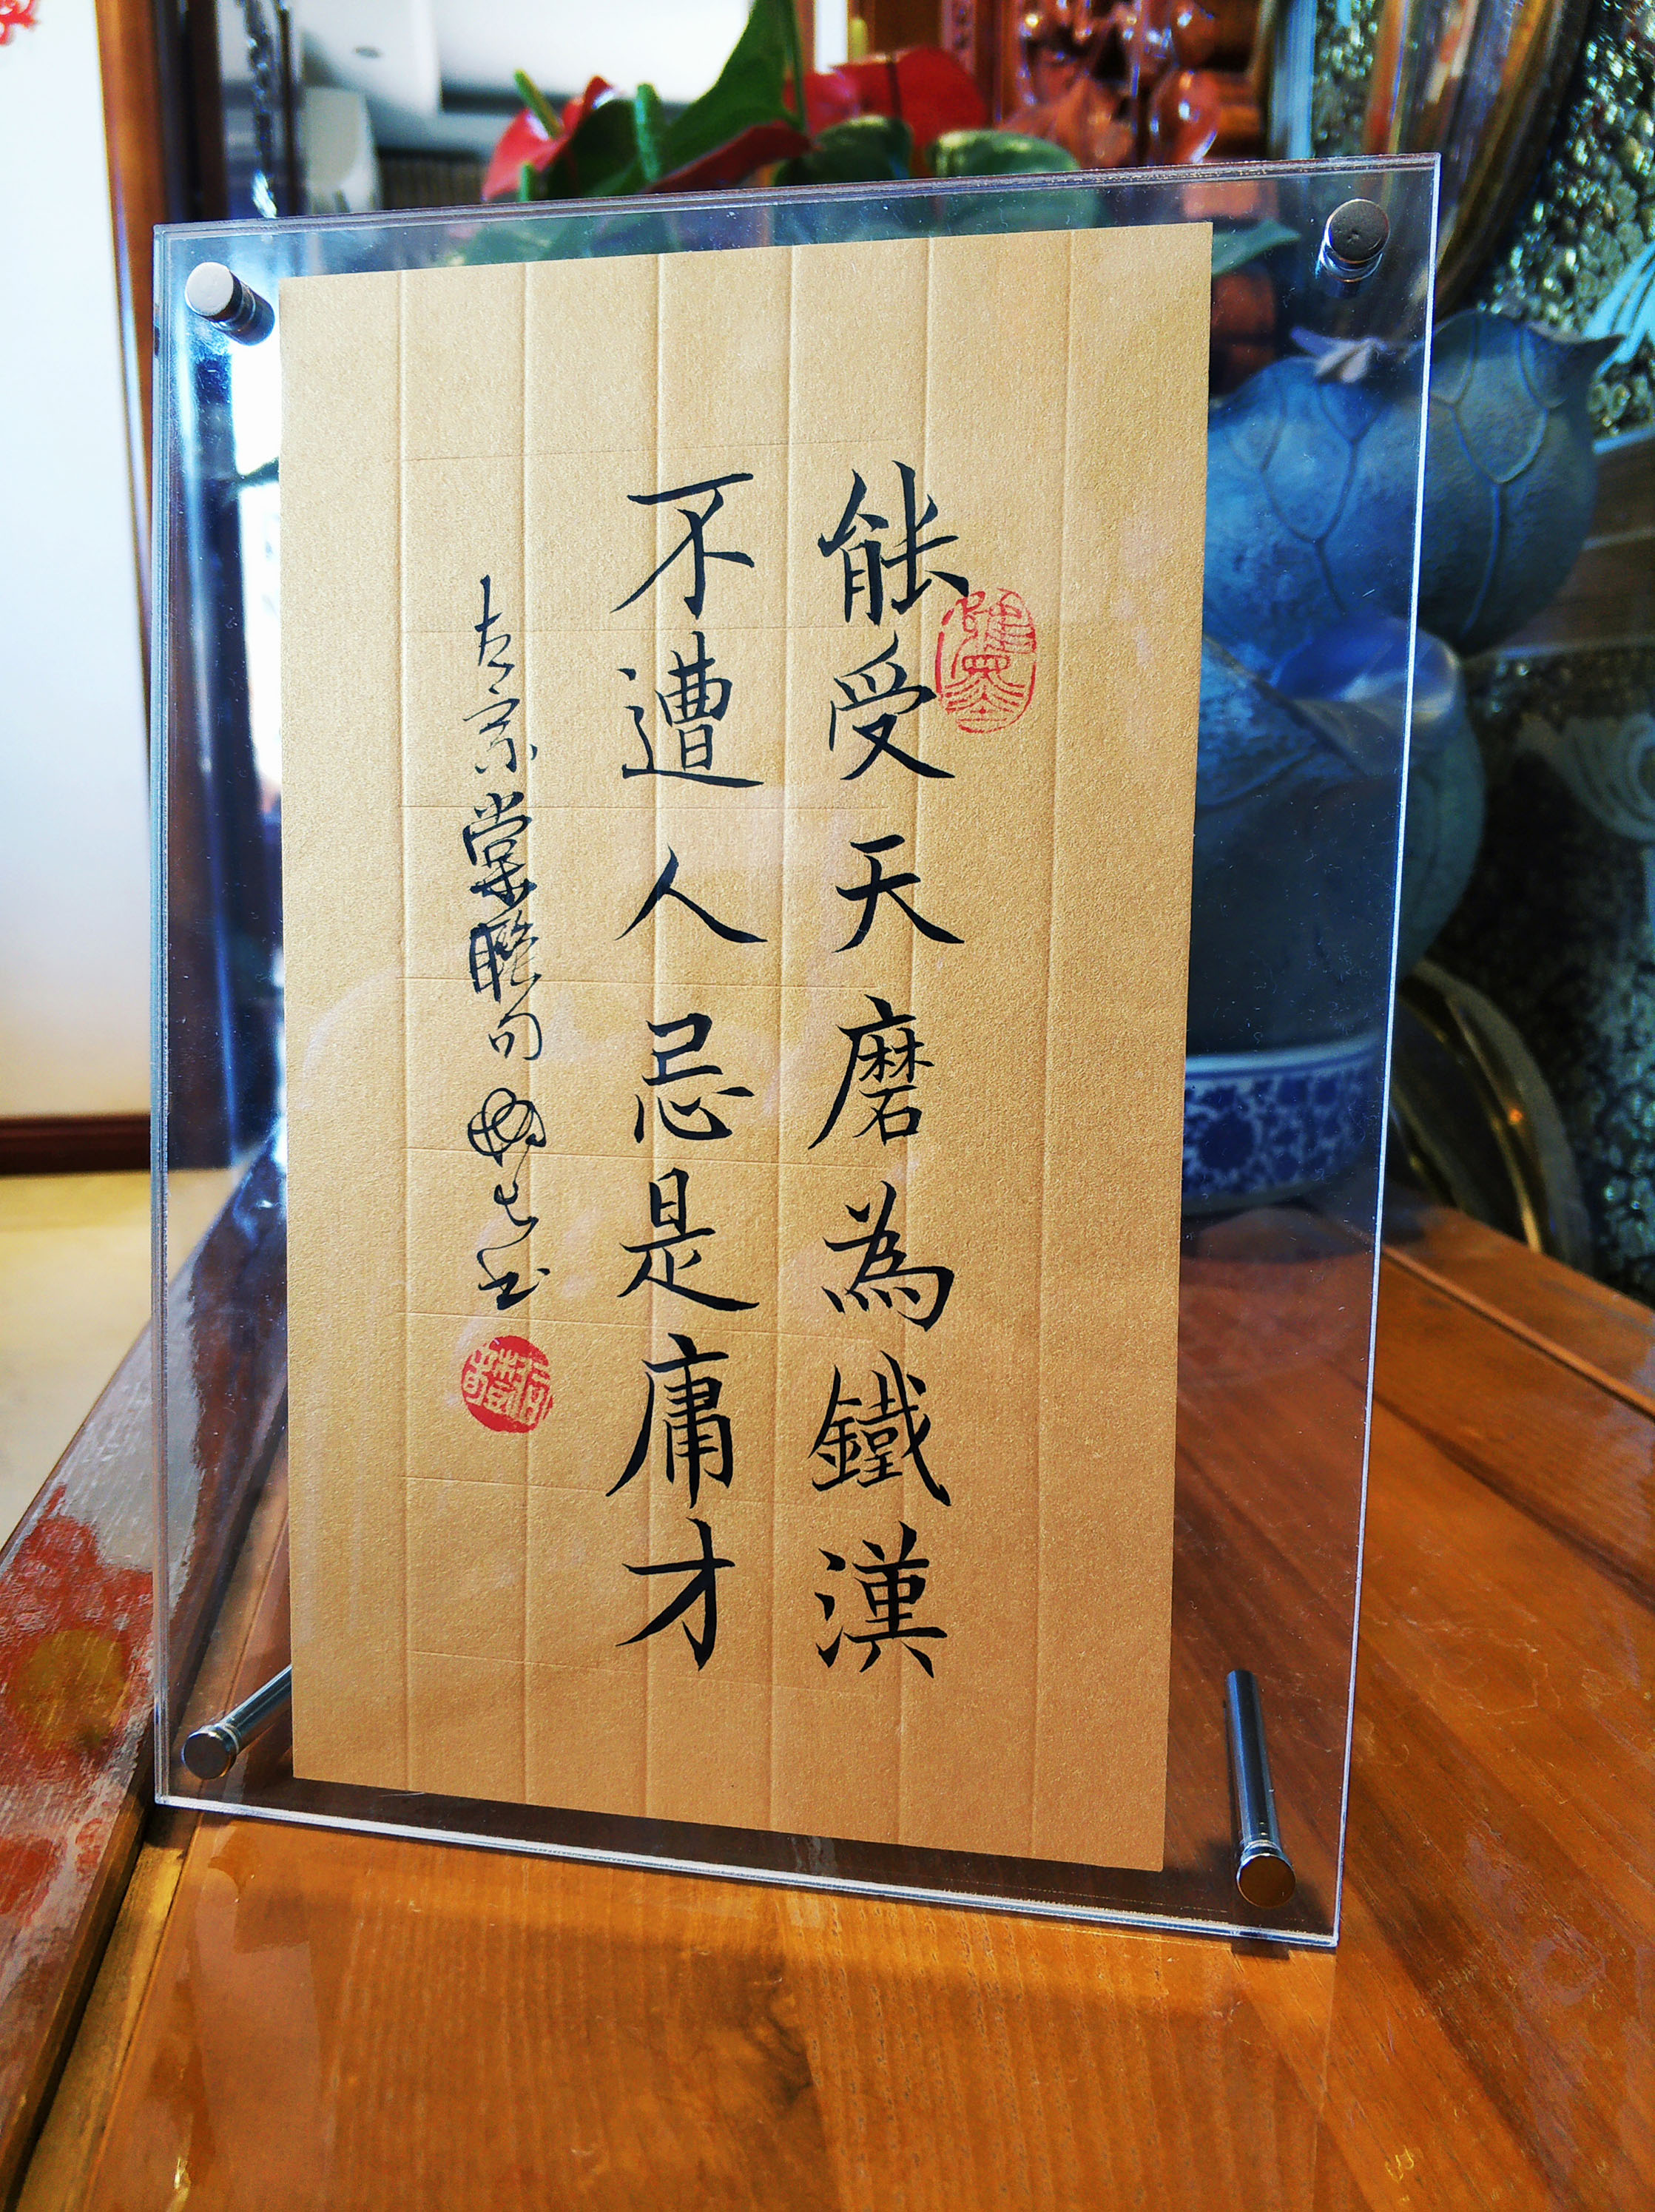 能受天磨為鐵漢
不遭人忌是庸才
左宗棠聯句